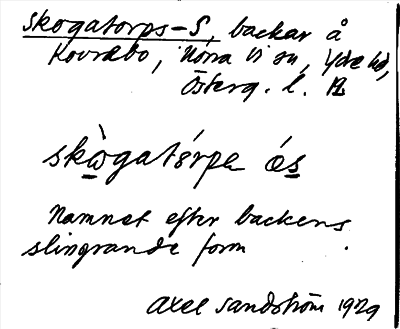 Skogatorps-S, backar å
Kovrabo, Norra Vi sn, Ydre hd,
Österg. l.
skògatórpe és
Namnet efter backens
slingrande form
Axel Sandström 1929